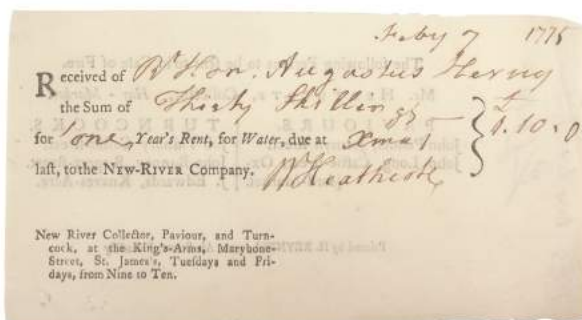 Feby 7 1775
Received of Rt Hon. Augustus Hervey
the Sum of Thirty Shillings £
for one Year's Rent, for Water, due at Xmas 1.10.0
laſt, to the NEW-RIVER COMPANY. W Heathcote
New River Collector, Paviour, and Turn-
cock, at the King's-Arms, Marybone-
Street, St. James's, Tueſdays and Fri-
days, from Nine to Ten.